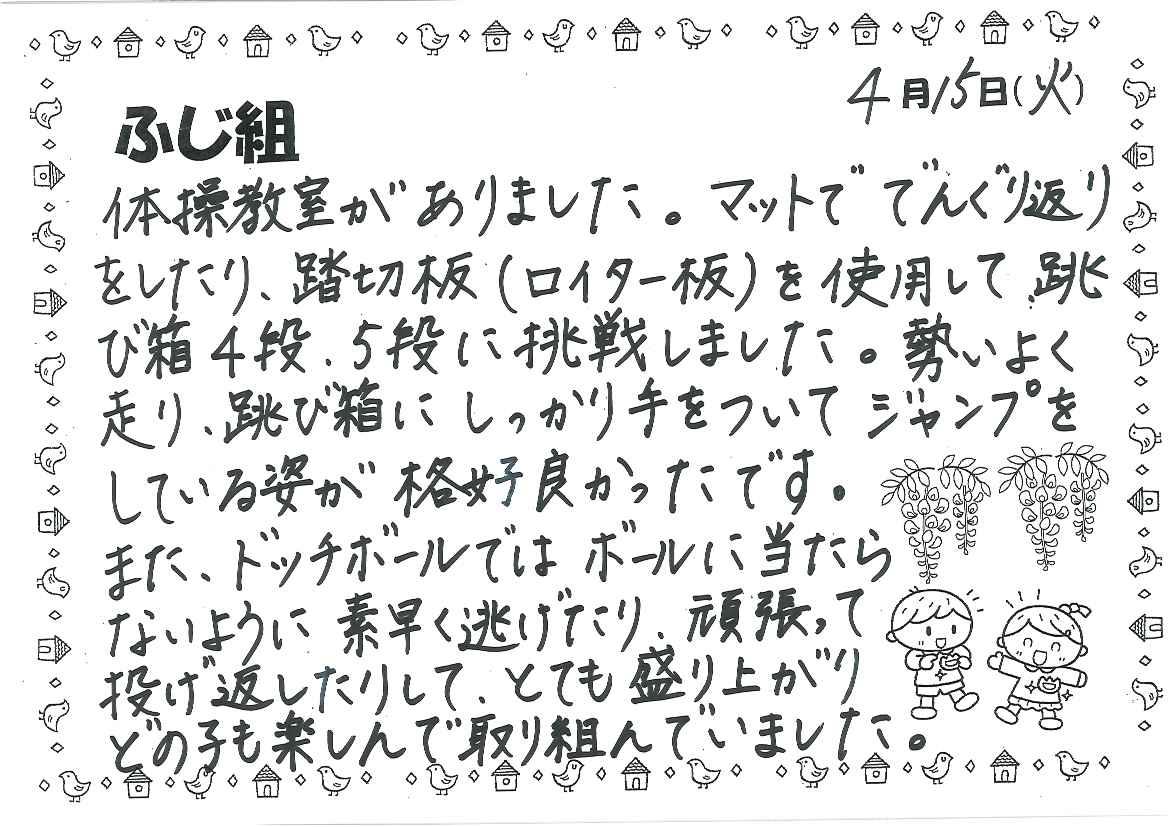 4月15日(火)
ふじ組
体操教室がありました。マットででんぐり返り
をしたり、踏切板(ロイター板)を使用して、跳
び箱4段、5段に挑戦しました。勢いよく
走り、跳び箱にしっかり手をついてジャンプを
している姿が格好良かったです。
また、ドッチボールではボールに当たら
ないように素早く逃げたり、頑張って
投げ返したりして、とても盛り上がり
どの子も楽しんで取り組んでいました。